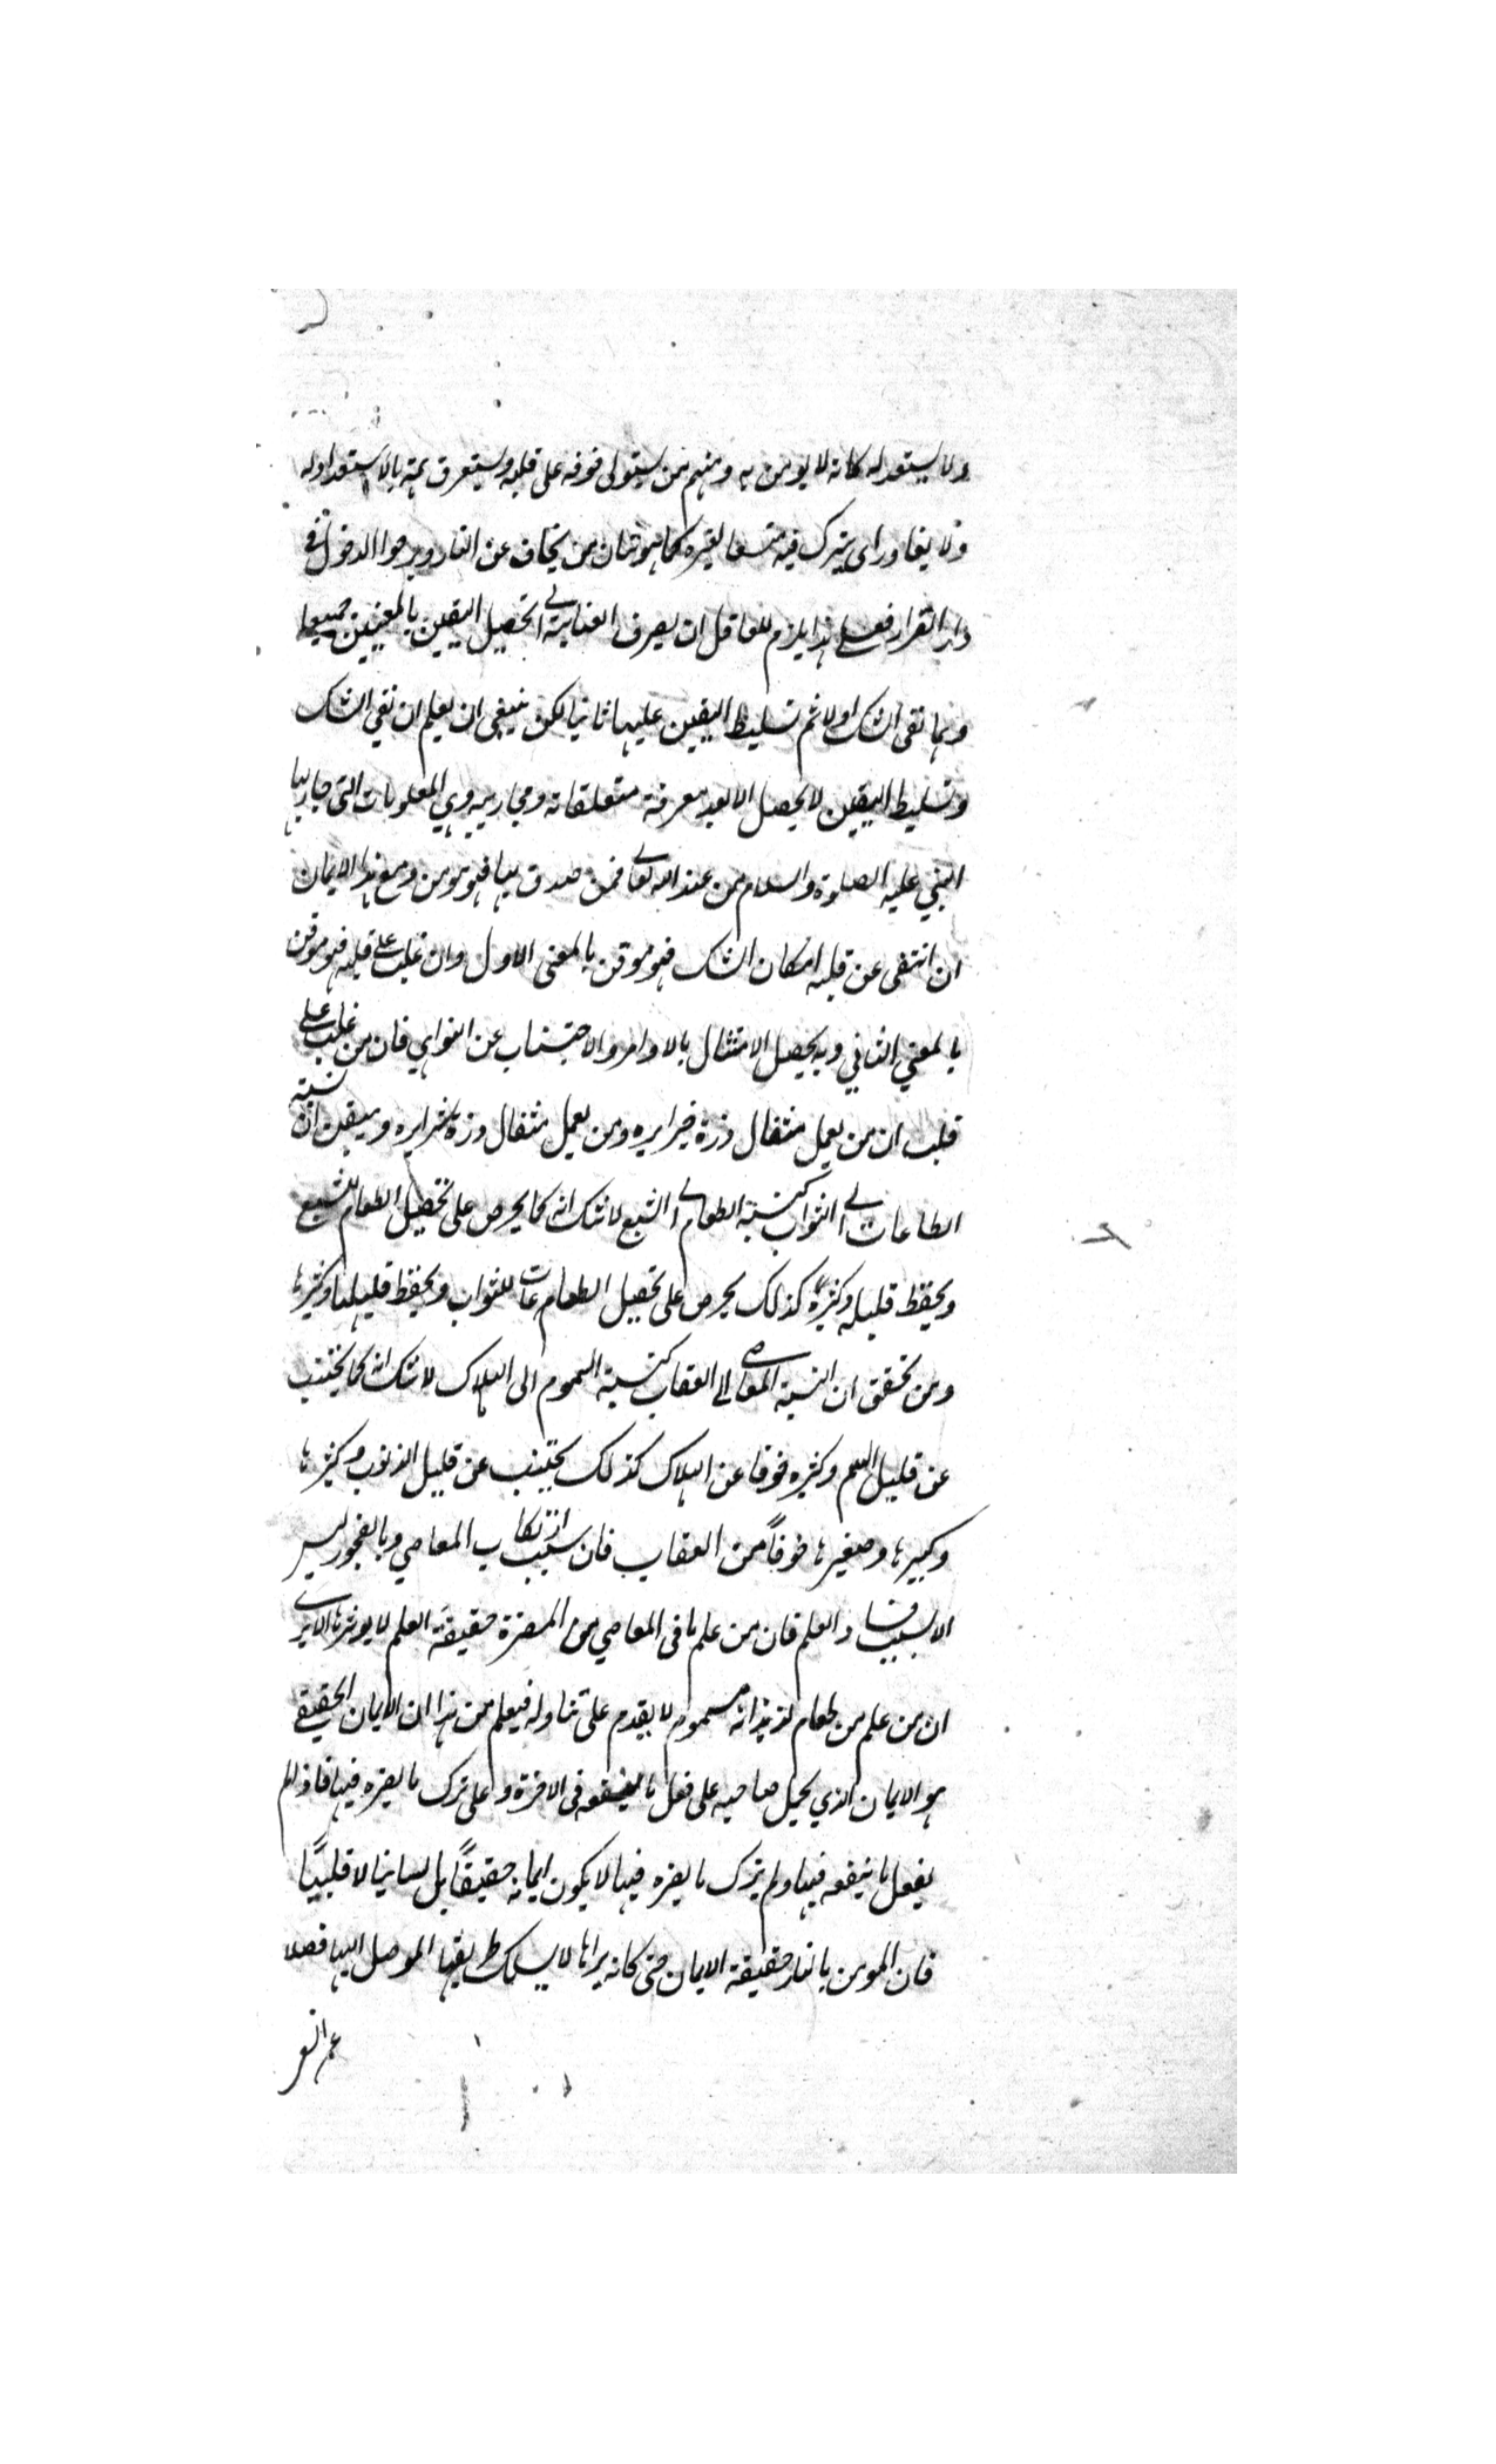 ولا يستعد له كانه لا يومن به ومنهم من يستولى خوفه على قلبه ويستغرق همته بالاستعداد له
ولا يغادر اى يترك فيه متسعا لغيره كما هو شان من يخاف عن النار ويرجوا الدخول فى
دار القرار فعلى هذا يلزم للعاقل ان يصرف العناية الى تحصيل اليقين بالمعنيين جميعا
وهما نفى الشك اولا ثم تسليط اليقين عليها ثانيا لكن ينبغى ان يعلم ان نفي الشك
وتسليط اليقين لا يحصل الا بعد معرفة متعلقاته ومجاريه وهي المعلومات التى جاء بها
النبي عليه الصلوة والسلام من عند الله تعالى فمن صدق بها فهو مومن ومع هذا الايمان
ان انتفى عن قلبه امكان الشك فهو موقن بالمعنى الاول وان غلب على قلبه فهو موقن
بالمعني الثاني وبه يحصل الامتثال بالاوامر والاجتناب عن النواهي فان من غلب على
قلبه ان من يعمل مثقال ذرة خيرا يره ومن يعمل مثقال ذرة شرا يره ويتيقن ان نسبته
الطاعات الى الثواب كنسبة الطعام الى الشبع لا شك انه كما يحرص على تحصيل الطعام للشبع
ويحفظ قليله وكثيره كذلك يحرص على تحصيل الطاعات للثواب ويحفظ قليلها وكثيرها
ومن تحقق ان النسبة المعاصى الى العقاب كنسبة السموم الى الهلاك لا شك انه كما يجتنب
عن قليل السم وكثيره خوفا عن الهلاك كذلك يجتنب عن قليل الذنوب وكثيرها
وكبيرها وصغيرها خوفاً من العقاب فان سبب ارتكاب المعاصي وبالفجور ليس
الا بسبب فساد العلم فان من علم ما فى المعاصي من المضرة حقيقة العلم لا يوثرها الا يرى
ان من علم من طعام لذيذ انه مسموم لا يقدم على تناوله فيعلم من هذا ان الايمان الحقيقى
هو الايمان الذي يحمل صاحبه على فعل ما ينفعه فى الاخرة وعلى ترك ما يضره فيها فاذا لم
يفعل ما ينفعه فيها ولم يترك ما يضره فيها لا يكون ايمانه حقيقاً بل لسانيا لا قلبيًا
فان المومن بالنار حقيقة الايمان حتى كانه يراها لا يسلك طريقها الموصل اليها فضلا
عن